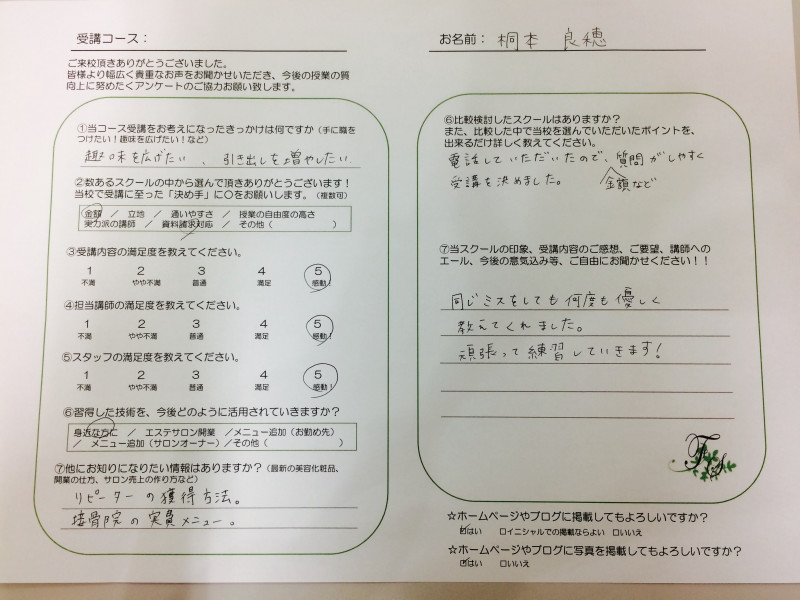 受講コース：
ご来校頂きありがとうございました。
皆様より幅広く貴重なお声をお聞かせいただき、今後の授業の質
向上に努めたくアンケートのご協力お願い致します。
①当コース受講をお考えになったきっかけは何ですか（手に職を
つけたい！趣味を広げたい！など）
趣味を広げたい、引き出しを増やしたい．
②数あるスクールの中から選んで頂きありがとうございます！
当校で受講に至った「決め手」に〇をお願いします。（複数可）
金額 ／ 立地 ／ 通いやすさ ／ 授業の自由度の高さ
実力派の講師 ／ 資料請求対応 ／ その他（ ）
③受講内容の満足度を教えてください。
1 2 3 4 5
不満 やや不満 普通 満足 感動！
④担当講師の満足度を教えてください。
1 2 3 4 5
不満 やや不満 普通 満足 感動！
⑤スタッフの満足度を教えてください。
1 2 3 4 5
不満 やや不満 普通 満足 感動！
⑥習得した技術を、今後どのように活用されていきますか？
身近な方に ／ エステサロン開業 ／メニュー追加（お勤め先）
／ メニュー追加（サロンオーナー）／その他（ ）
⑦他にお知りになりたい情報はありますか？（最新の美容化粧品、
開業の仕方、サロン売上の作り方など）
リピーターの獲得方法。
接骨院の実員メニュー。
お名前： 桐本 良穂
⑥比較検討したスクールはありますか？
また、比較した中で当校を選んでいただいたポイントを、
出来るだけ詳しく教えてください。
電話していただいたので、質問がしやすく
受講を決めました。 金額など
⑦当スクールの印象、受講内容のご感想、ご要望、講師への
エール、今後の意気込み等、ご自由にお聞かせください！！
同じミスをしても何度も優しく
教えてくれました。
頑張って練習していきます！
☆ホームページやブログに掲載してもよろしいですか？
☑はい □イニシャルでの掲載ならよい □いいえ
☆ホームページやブログに写真を掲載してもよろしいですか？
☑はい □いいえ